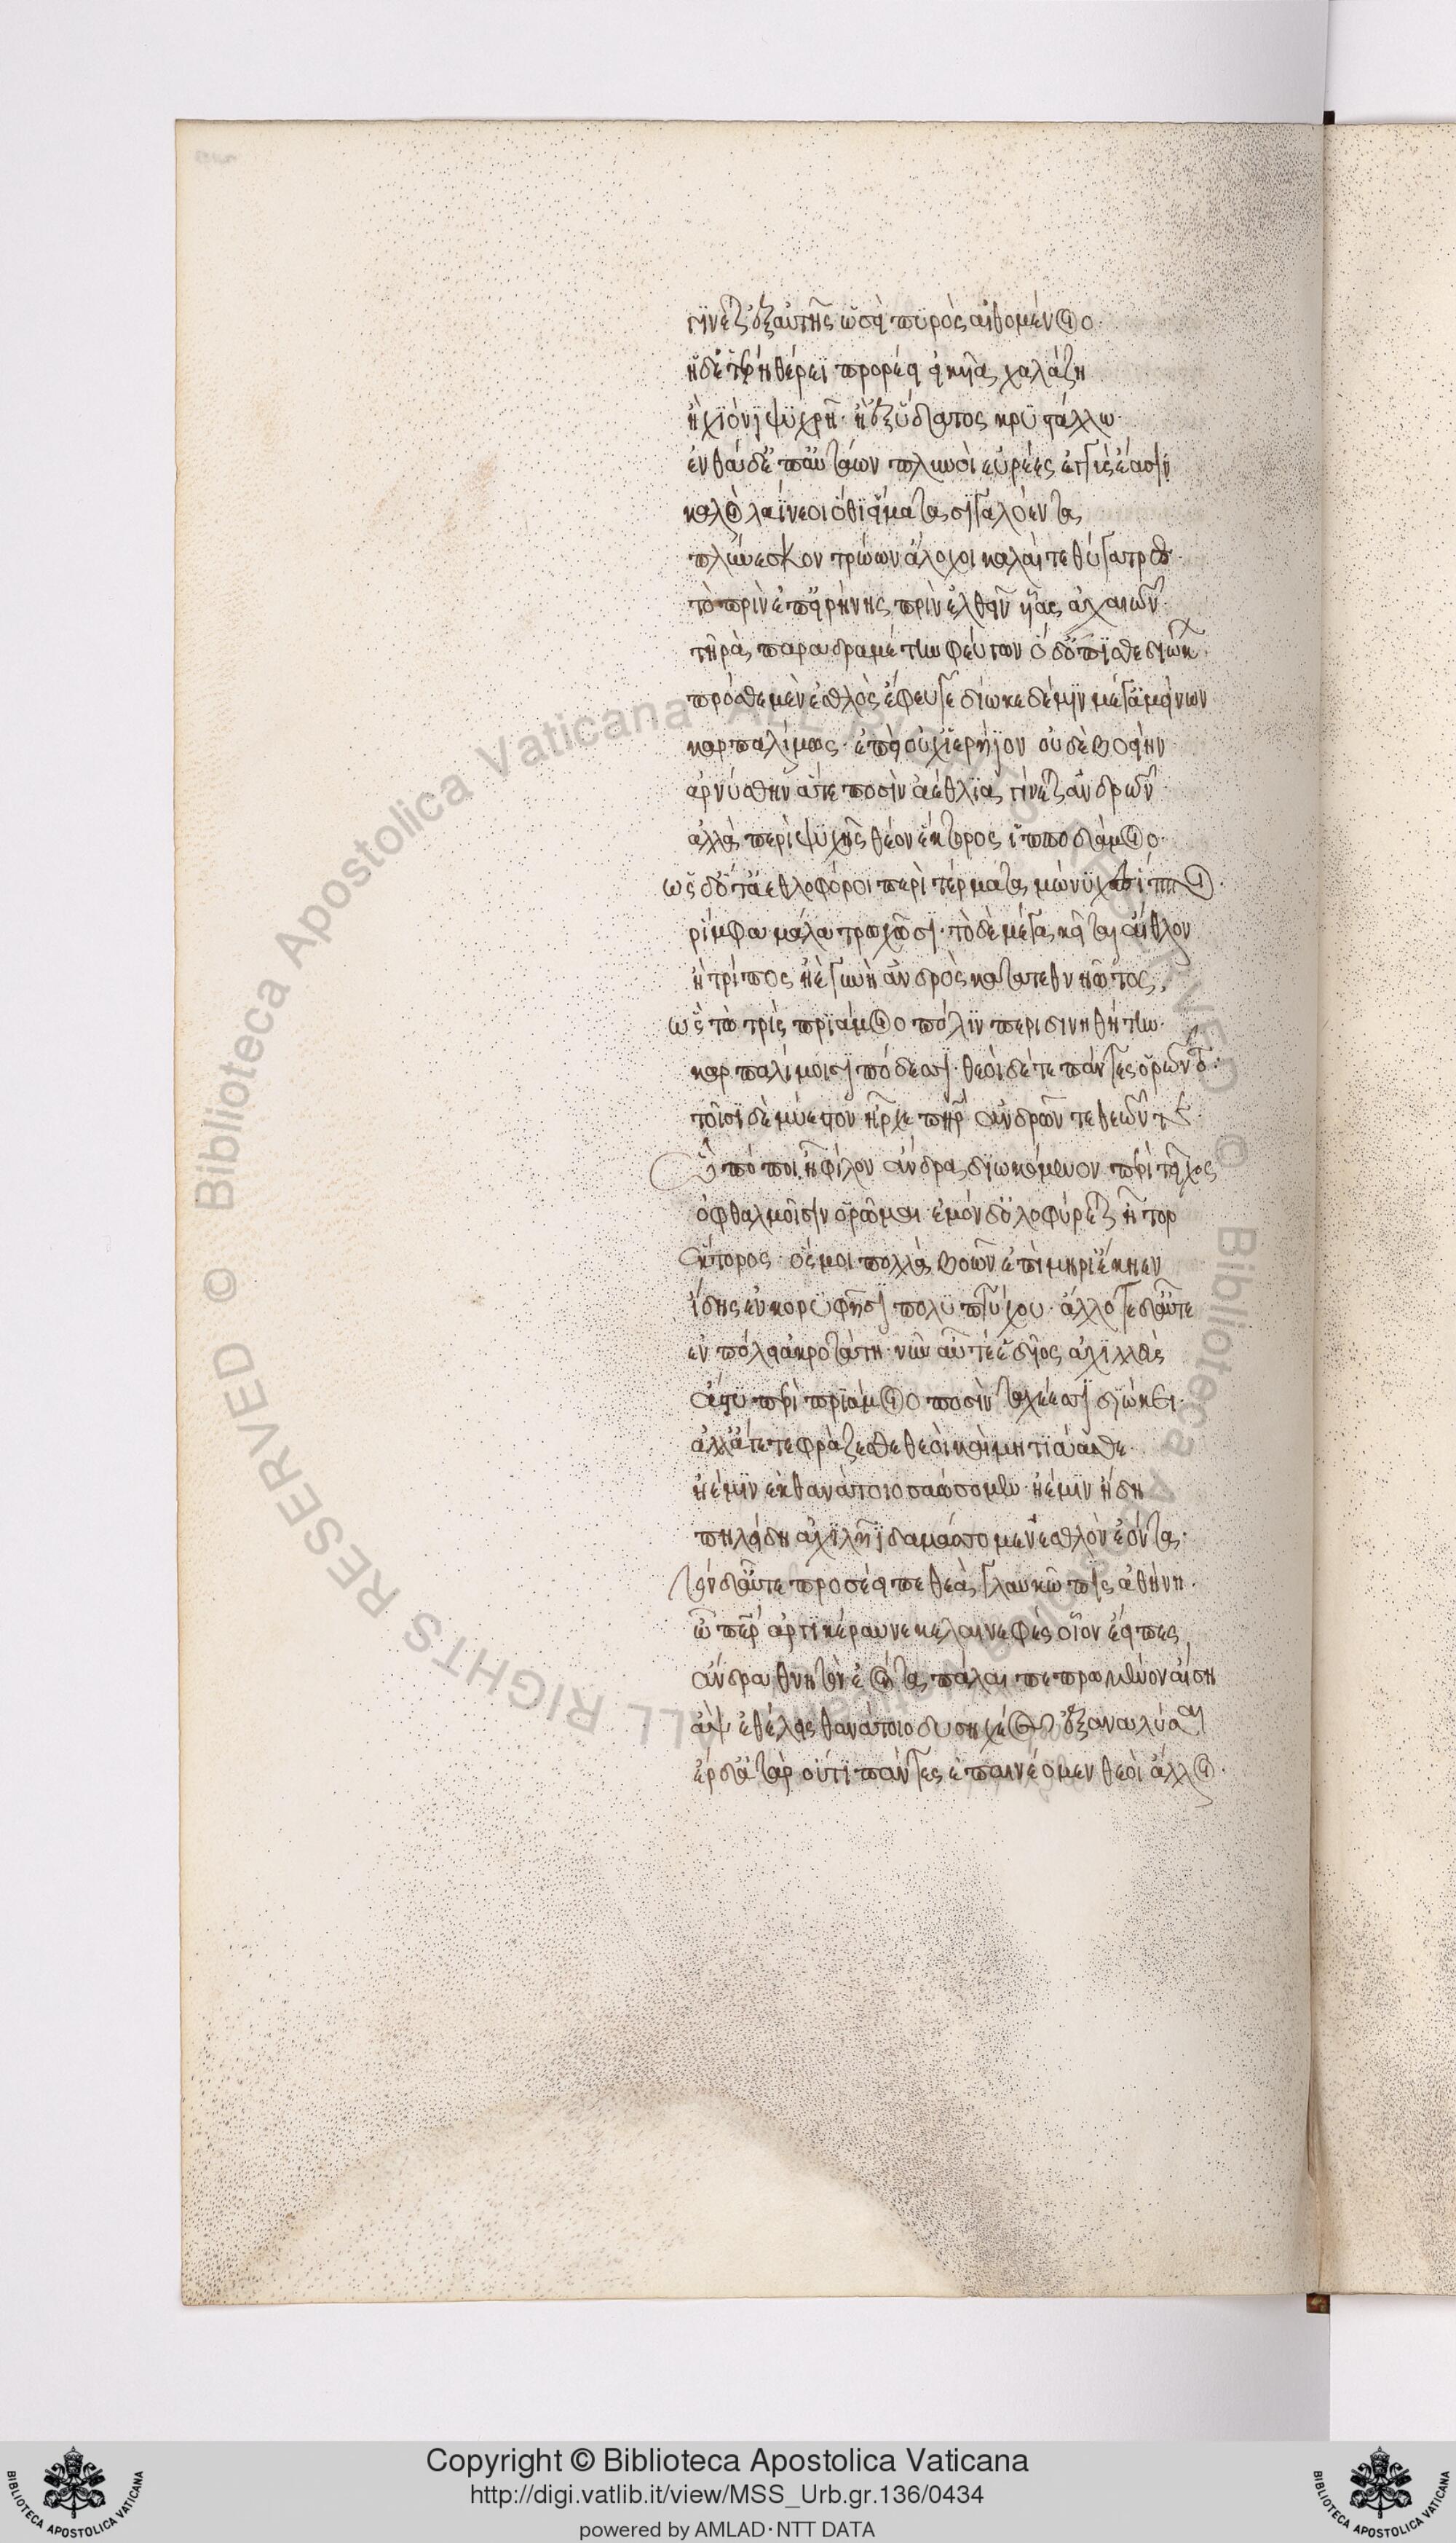 γίνεται ἐξ αὐτῆς ὡσεὶ πυρὸς αἰθομένοιο·
ἡ δ' ἑτέρη θέρεϊ προρέει εἰκυῖα χαλάζῃ
ἢ χιόνι ψυχρῇ· ἢ ἐξ ὕδατος κρυστάλλῳ·
ἔνθα δ' ἐπ' αὐτάων πλυνοὶ εὐρέες ἐγγὺς ἔασιν
καλοὶ λαΐνεοι ὅθι εἵματα σιγαλόεντα
πλύνεσκον τρώων ἄλοχοι καλαί τε θύγατρες·
τὸ πρὶν ἐπ' εἰρήνης πρὶν ἐλθεῖν υἷας ἀχαιῶν·
τῇ ῥα παραδραμέτην φεύγων ὁ δ' ὄπισθε διώκων·
πρόσθε μὲν ἐσθλὸς ἔφευγε δίωκε δέ μιν μέγ' ἀμείνων
καρπαλίμως· ἐπεὶ οὐχ ἱερήϊον οὐδὲ βοείην
ἀρνύσθην ἅ τε ποσὶν ἀέθλια γίνεται ἀνδρῶν·
ἀλλὰ περὶ ψυχῆς θέον ἕκτορος ἱπποδάμοιο·
ὡς δ' ὅτ' ἀεθλοφόροι περὶ τέρματα μώνυχες ἵπποι·
ῥίμφα μάλα τρωχῶσι· τὸ δὲ μέγα κεῖται ἄεθλον
ἢ τρίπος ἠὲ γυνὴ ἀνδρὸς κατατεθνηῶτος,
ὣς τὼ τρὶς πριάμοιο πόλιν περιδινηθήτην·
καρπαλίμοισι πόδεσσι· θεοὶ δέ τε πάντες ὁρῶντο·
τοῖσι δὲ μύθων ἦρχε πατὴρ ἀνδρῶν τε θεῶν τε·
Ὢ πόποι ἦ φίλον ἄνδρα διωκόμενον περὶ τεῖχος
ὀφθαλμοῖσιν ὁρῶμαι· ἐμὸν δ' ὀλοφύρεται ἦτορ
ἕκτορος· ὅς μοι πολλὰ βοῶν ἐπὶ μηρί' ἔκηεν
ἴδης ἐν κορυφῇσι πολυπτύχου· ἄλλοτε δ' αὖτε
ἐν πόλει ἀκροτάτῃ· νῦν αὖτέ ἑ δῖος ἀχιλλεὺς
ἄστυ περὶ πριάμοιο ποσὶν ταχέεσσι διώκει·
ἀλλ' ἄγετε φράζεσθε θεοὶ καὶ μητιάασθε·
ἠέ μιν ἐκ θανάτοιο σαώσομεν· ἠέ μιν ἤδη
πηλείδῃ ἀχιλῆϊ δαμάσσομεν ἐσθλὸν ἐόντα·
τὸν δ' αὖτε προσέειπε θεὰ γλαυκῶπις ἀθήνη·
ὦ πάτερ ἀργικέραυνε κελαινεφὲς οἷον ἔειπες
ἄνδρα θνητὸν ἐόντα πάλαι πεπρωμένον αἴσῃ
ἂψ ἐθέλεις θανάτοιο δυσηχέος ἐξαναλῦσαι
ἔρδ' ἀτὰρ οὔ τι πάντες ἐπαινέομεν θεοὶ ἄλλοι·
Copyright © Biblioteca Apostolica Vaticana
http://digi.vatlib.it/view/MSS_Urb.gr.136/0434
powered by AMLAD·NTT DATA